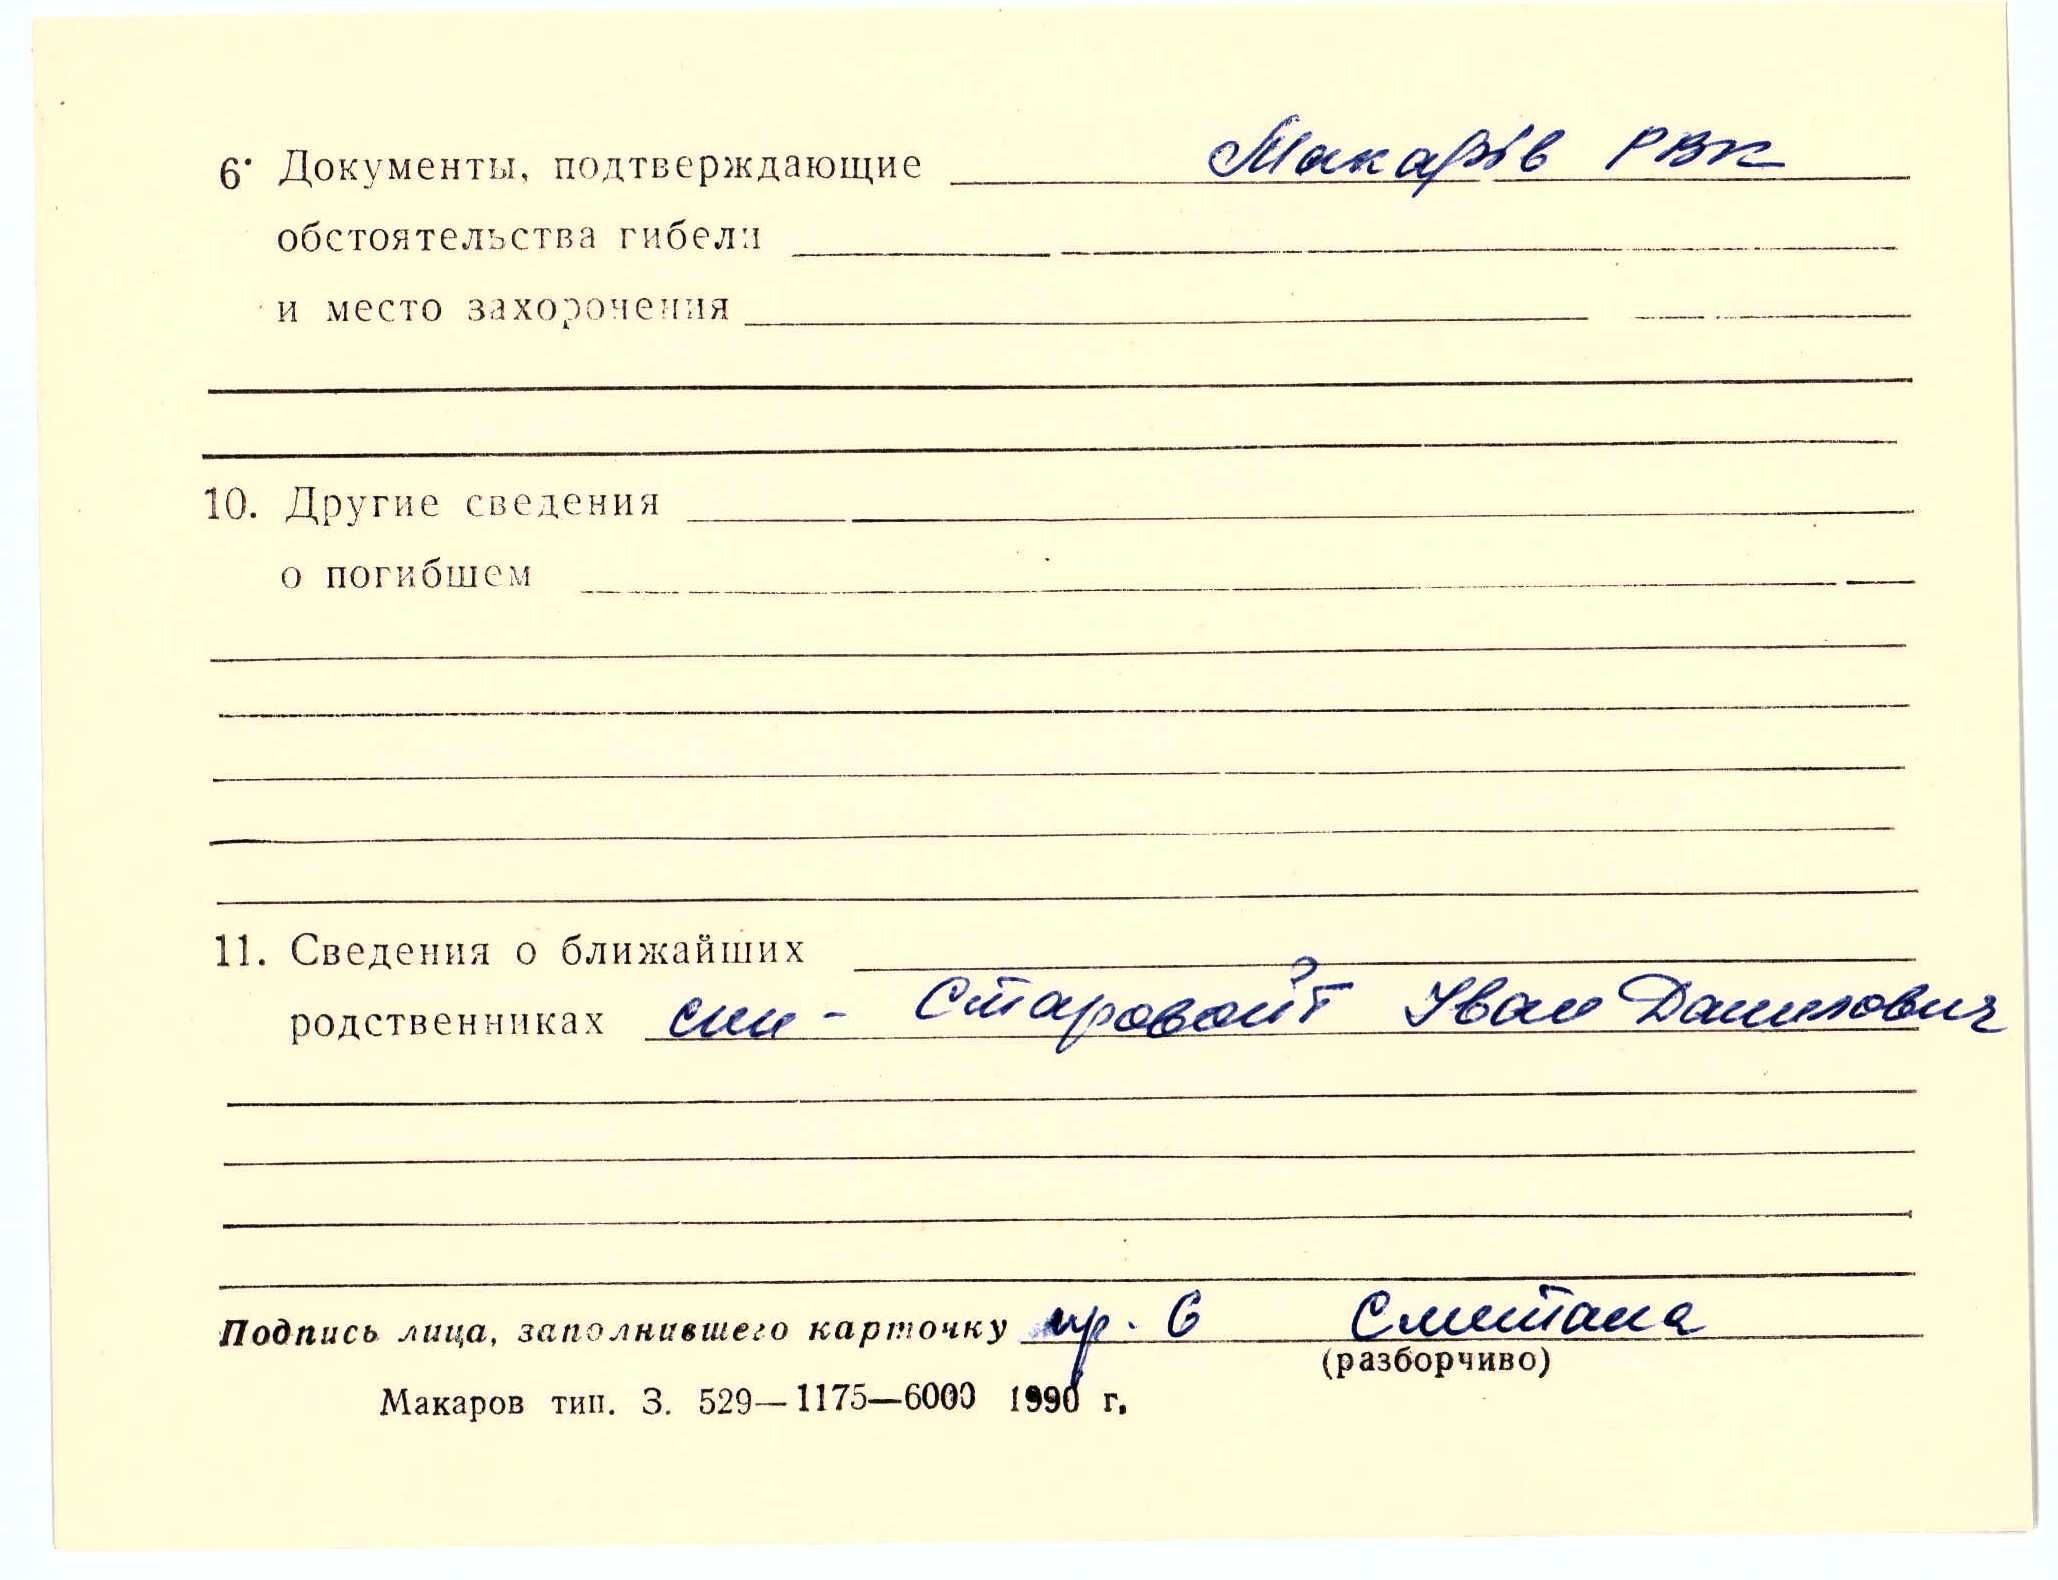 6. Документы, подтверждающие Макарів РВК
обстоятельства гибели
и место захоронения
10. Другие сведения
о погибшем
11. Сведения о ближайших
родственниках син - Старовойт Іван Данилович
Подпись лица, заполнившего карточку пр. 6 Сметана
(разборчиво)
Макаров тип. З. 529—1175—6000 1990 г.